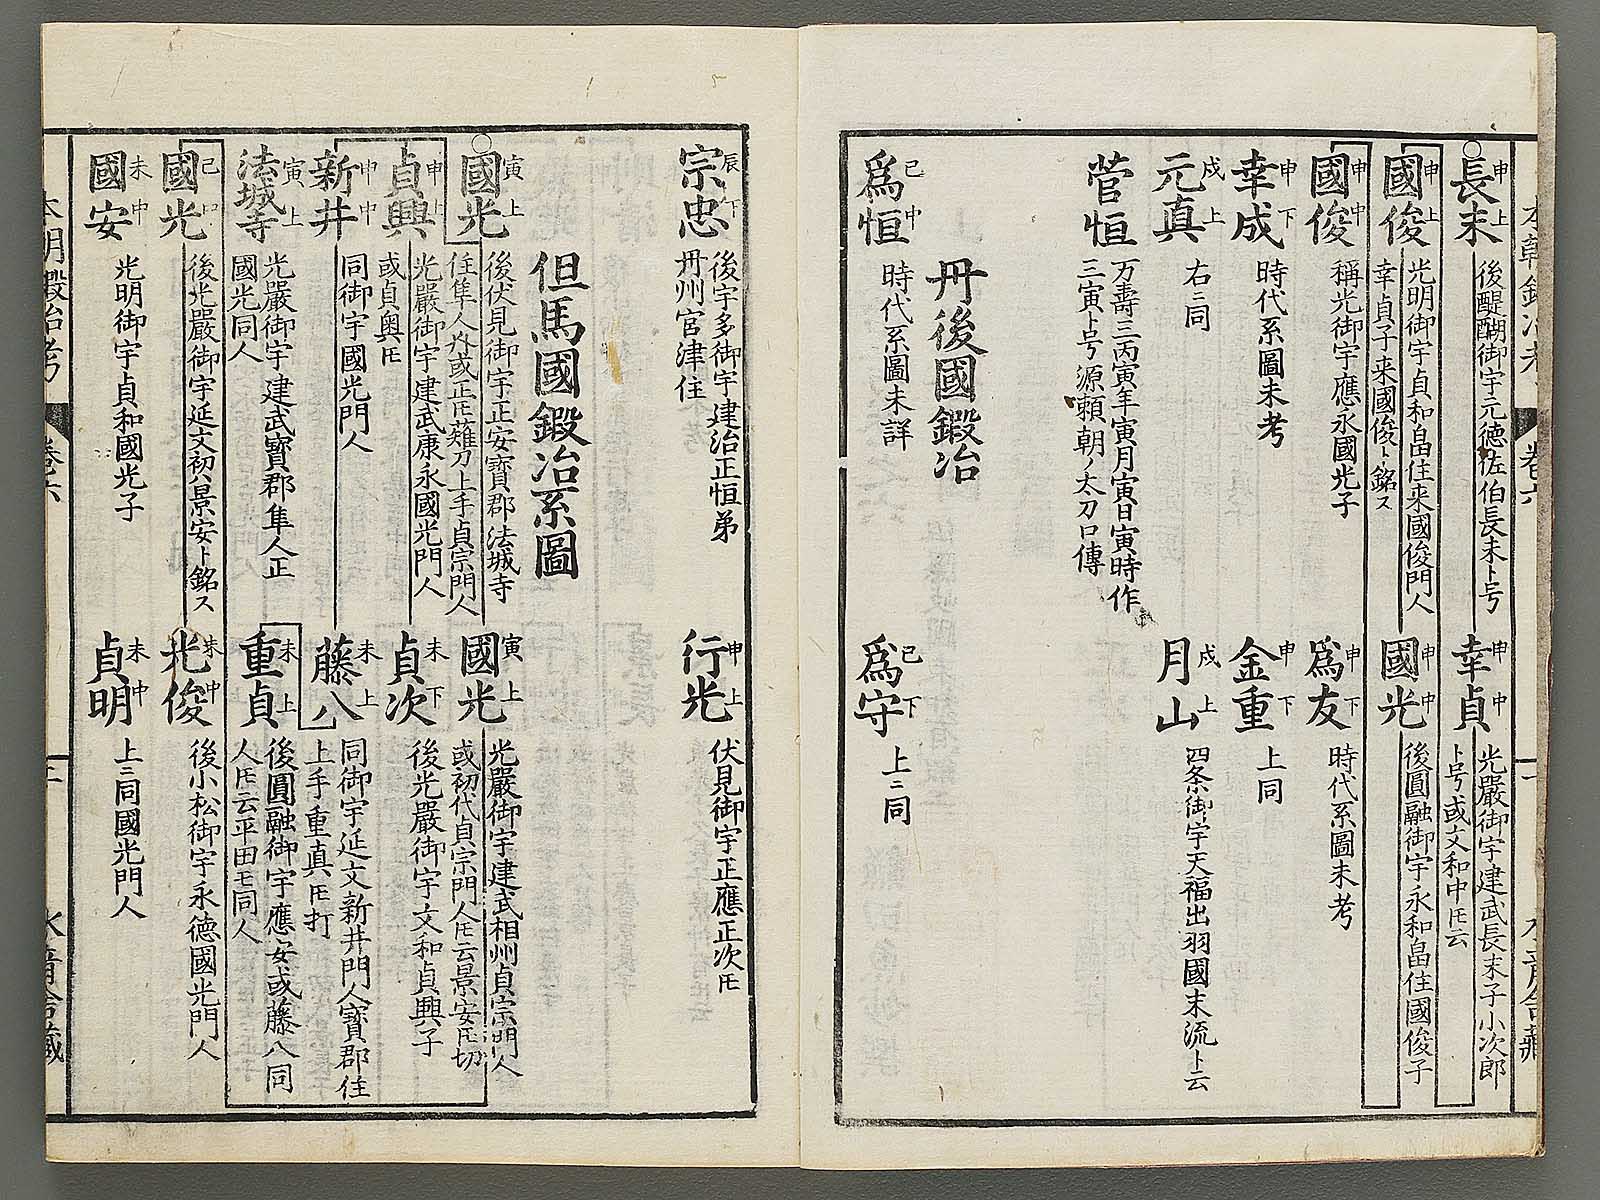 長末 申上
後醍醐御宇元德佐伯長未ト号
幸貞 申中
光嚴御宇建武長末子小次郎
ト号或文和中𪜈云
國俊 申上
光明御宇貞和畠住来國俊門人
幸貞子来國俊ト銘ス
國光 申中
後圓融御宇永和畠住國俊子
國俊 申中
稱光御宇應永國光子
爲友 申下
時代系圖未考
幸成 申下
時代系圖未考
金重 申下
上同
元真 戌上
右ニ同
月山 戌上
四条御宇天福出羽國末流ト云
菅恒
万壽三丙寅年寅月寅日寅時作
三寅ト号源頼朝ノ太刀口傳
丹後國鍛冶
爲恒 己中
時代系圖未詳
爲守 己下
上ニ同
宗忠 辰下
後宇多御宇建治正恒弟
丹州宮津住
行光 申上
伏見御宇正應正次𪜈
但馬國鍛冶系圖
國光 寅上
後伏見御宇正安寳郡法城寺
住隼人外或正𪜈薙刀上手貞宗門人
國光 寅上
光嚴御宇建武相州貞宗門人
或初代貞宗門人𪜈云景安𪜈切
貞興 申上
光嚴御宇建武康永國光門人
或貞奥𪜈
貞次 未下
後光嚴御宇文和貞興子
新井 申中
同御宇國光門人
藤八 未上
同御宇延文新井門人寳郡住
上手重真𪜈打
法城寺 寅上
光嚴御宇建武寳郡隼人正
國光同人
重貞 未上
後圓融御宇應安或藤八同
人𪜈云平田𪜈同人
國光 己中
後光嚴御宇延文初八景安ト銘ス
光俊 未中
後小松御宇永德國光門人
國安 未中
光明御宇貞和國光子
貞明 未中
上ニ同國光門人
卷六